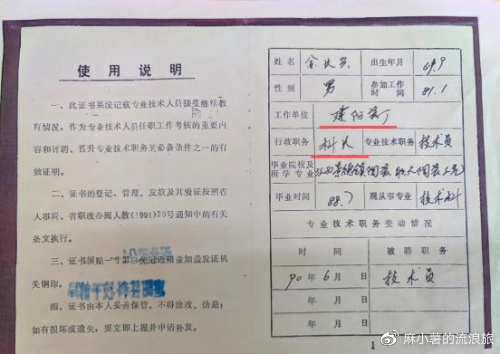 使用说明
一、此证书系统记载专业技术人员接受继续教
育情况，作为专业技术人员任职工作考核的重要内
容和评聘、晋升专业技术职务必备条件之一的有
效证明。
二、证书的登记、管理、发放及其验证按照省
人事厅、省职改办闽人教(1991)320号通知中的有关
条文执行。
三、证书须贴一寸免冠近期并加盖发证机
关钢印。
四、证书由本人妥善保管、不得涂改、伪造；
如有损坏或遗失，要立即上报并申请补发。
姓名 金 出生年月 69.9
性别 男 参加工作时间 89.1
工作单位 建阳瓷厂
行政职务 科长 专业技术职务 技术员
毕业院校及所学专业 江西景德镇陶瓷
毕业时间 88.7 现从事专业 技术科
专业技术职务变动情况
时间 被聘职务
90年6月 日 技术员
年 月 日
年 月 日
1
@麻小薯的流浪旅